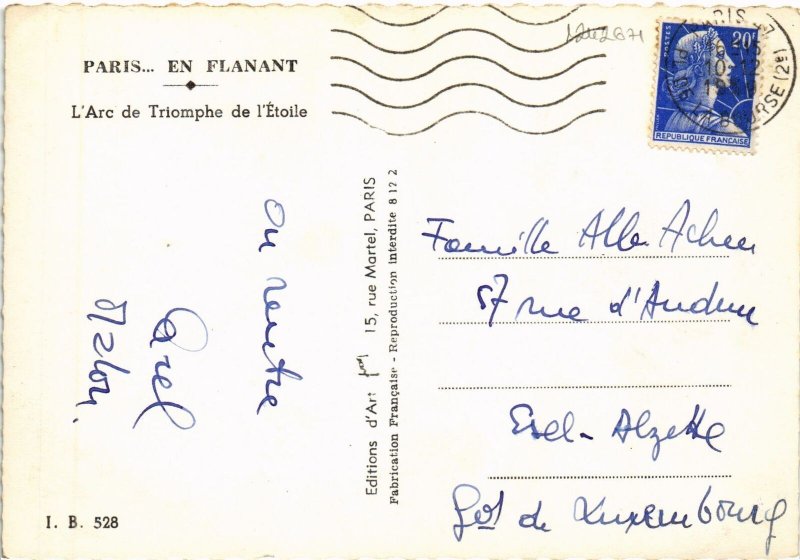 PARIS... EN FLANANT
L'Arc de Triomphe de l'Étoile
on rentre
I. B. 528
Editions d'Art 15, rue Martel, PARIS
Fabrication Française - Reproduction interdite 8 12 2
POSTES
20F
REPUBLIQUE FRANÇAISE
PARIS
10-12
BOURSE (2e)
Famille Alb. Achen
57 rue d'Audun
Esch-Alzette
Gd de Luxembourg